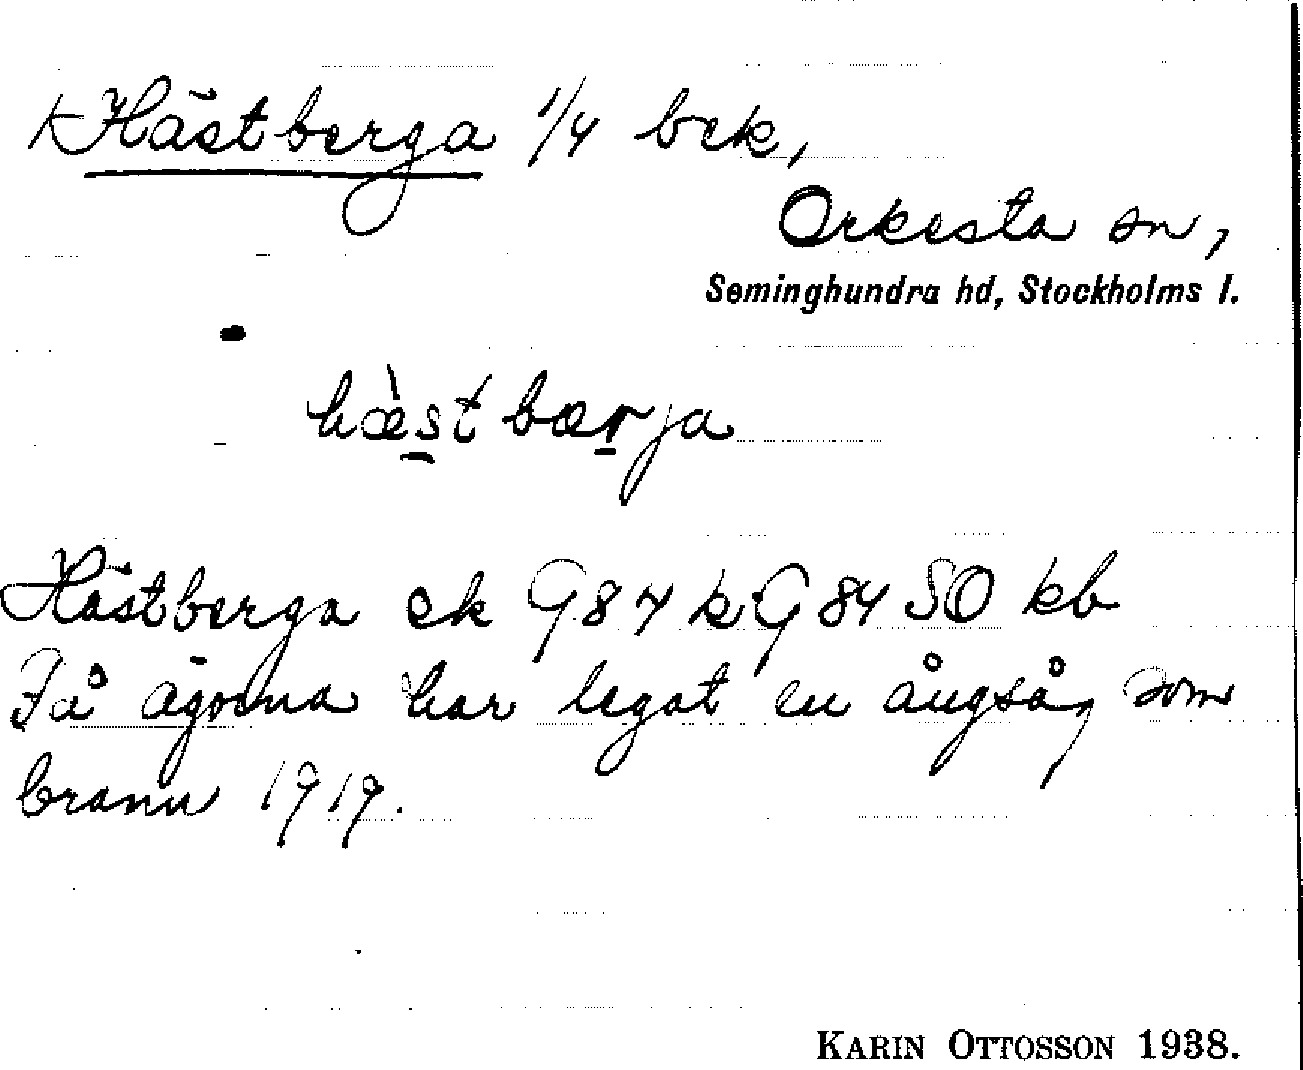 Hästberga 1/4 bek,
Orkesta sn,
Seminghundra hd, Stockholms l.
hæ̀stbærja
Hästberga ek G 84 k G 84 SO kb
På ägorna har legat en ångsåg som
brann 1919.
KARIN OTTOSSON 1938.